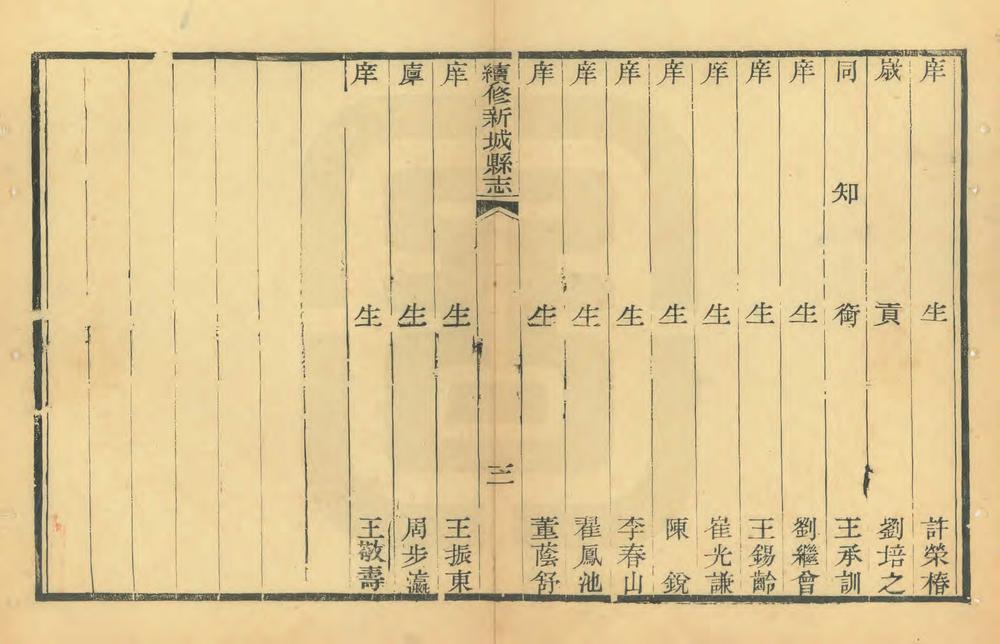 庠生許榮椿
歲貢劉培之
同知銜王承訓
庠生劉繼曾
庠生王錫齡
庠生崔光謙
庠生陳銳
庠生李春山
庠生翟鳳池
庠生董蔭舒
續修新城縣志
三
庠生王振東
廩生周步瀛
庠生王敬壽